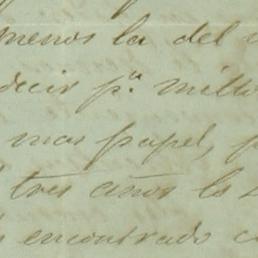 menos la del
decir p.ª mill
mas papel, p
tres años la
encontrado c